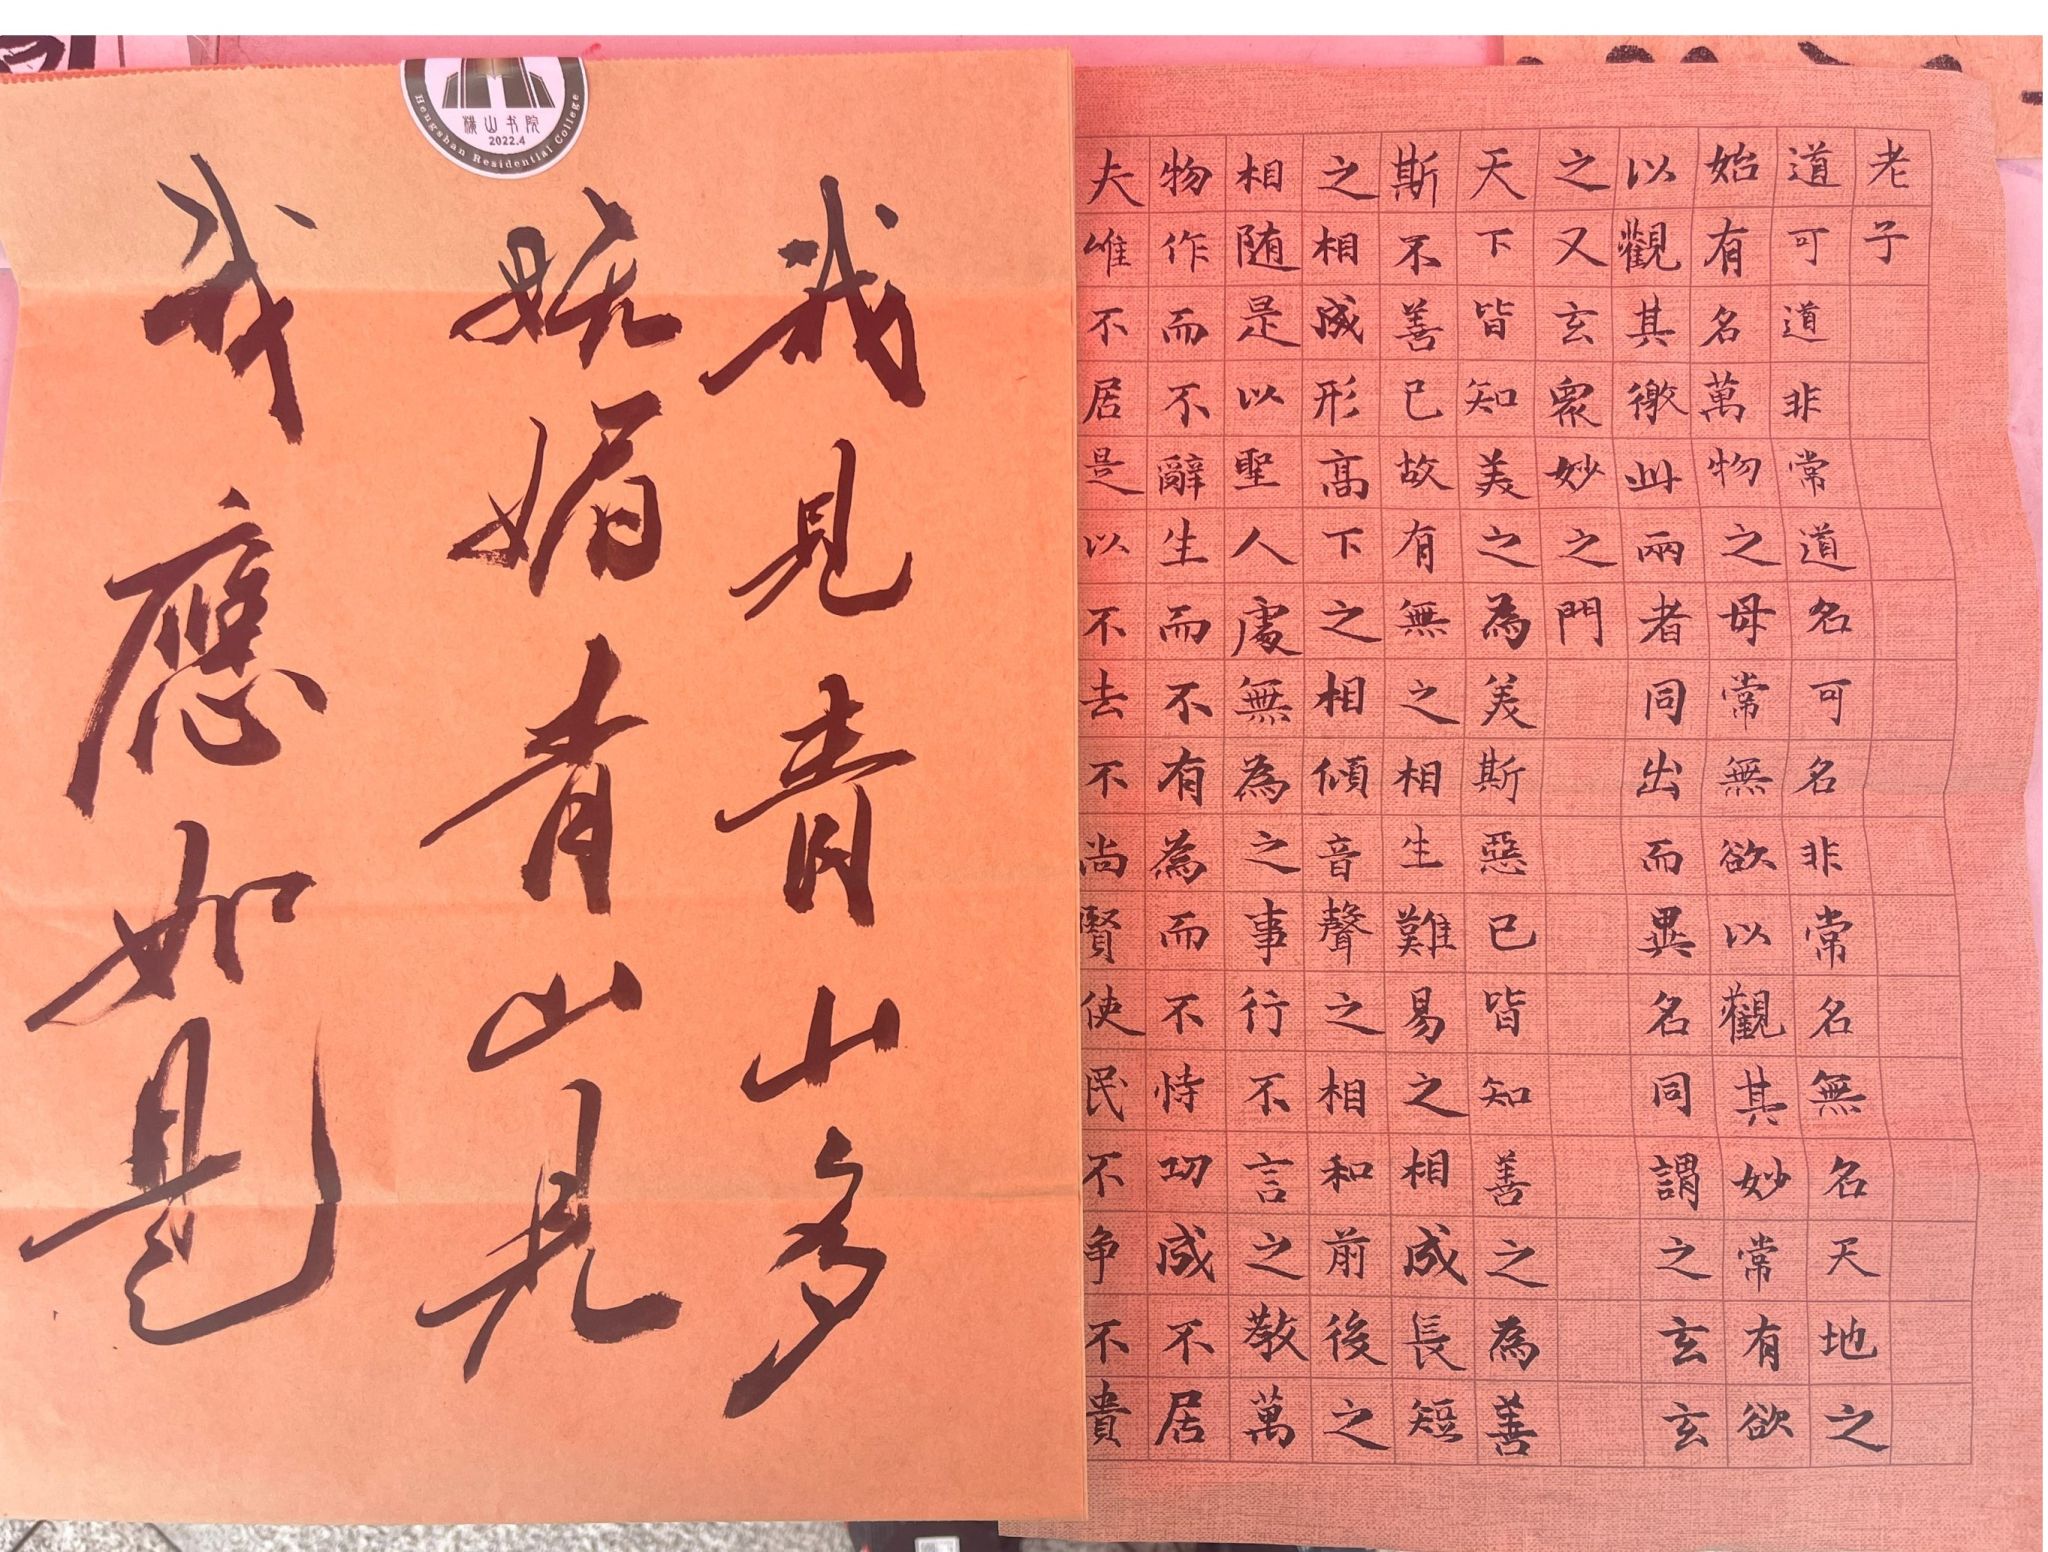 老子
道可道非常道名可名非常名無名天地之
始有名萬物之母常無欲以觀其妙常有欲
以觀其徼此兩者同出而異名同謂之玄玄
之又玄眾妙之門
天下皆知美之為美斯惡已皆知善之為善
斯不善已故有無之相生難易之相成長短
之相成形高下之相傾音聲之相和前後之
相随是以聖人處無為之事行不言之教萬
物作而不辭生而不有為而不恃功成不居
夫唯不居是以不去不尚賢使民不争不貴
我見青山多
妩媚青山見
我應如是
横山书院
2022.4
Hengshan Residential College